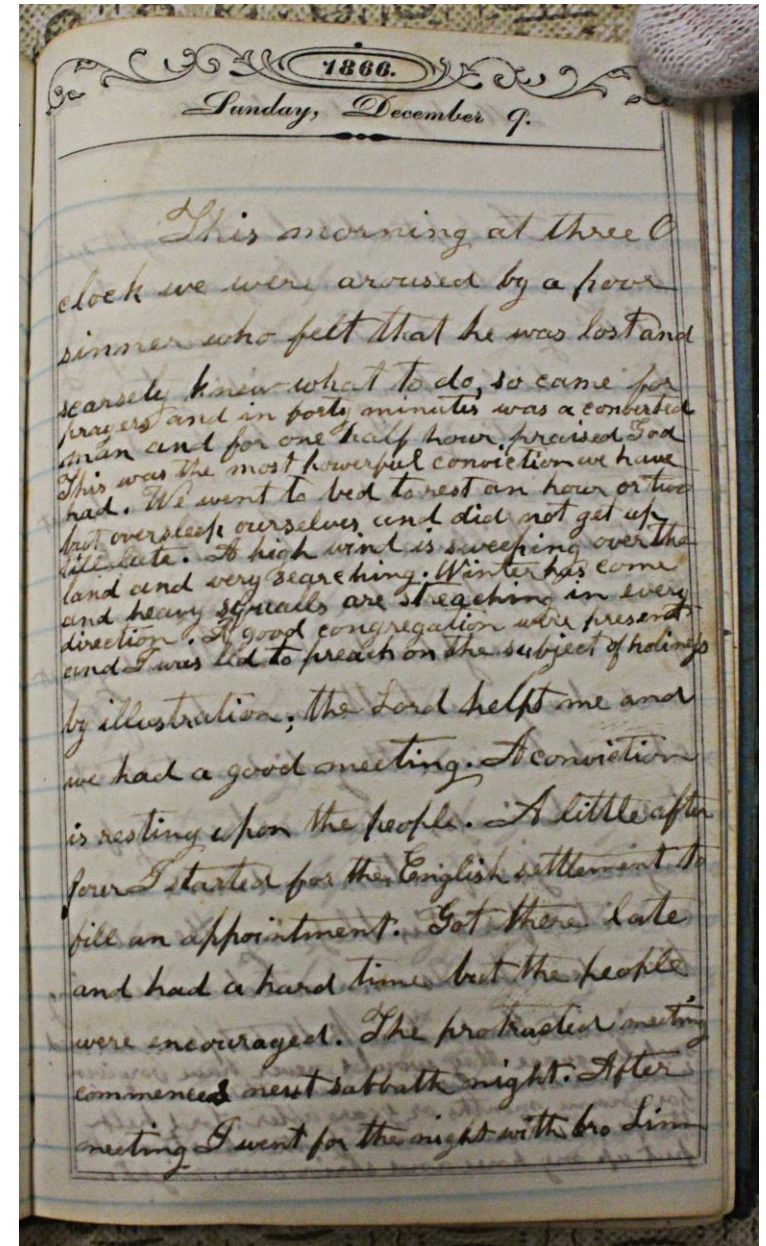 1866.
Sunday, December 9.
This morning at three O
clock we were aroused by a poor
sinner who felt that he was lost and
scarsely knew what to do, so came for
prayers and in forty minutes was a converted
man and for one half hour praised God
This was the most powerful conviction we have
had. We went to bed to rest an hour or two
but oversleep ourselves and did not get up
till late. A high wind is sweeping over the
land and very searching. Winter has come
and heavy squalls are streaching in every
direction. A good congregation were present
and I was led to preach on the subject of holiness
by illustration; the Lord helpt me and
we had a good meeting. A conviction
is resting upon the people. A little after
four I started for the English settlement to
fill an appointment. Got there late
and had a hard time but the people
were encouraged. The protracted meeting
commences next sabbath night. After
meeting I went for the night with bro